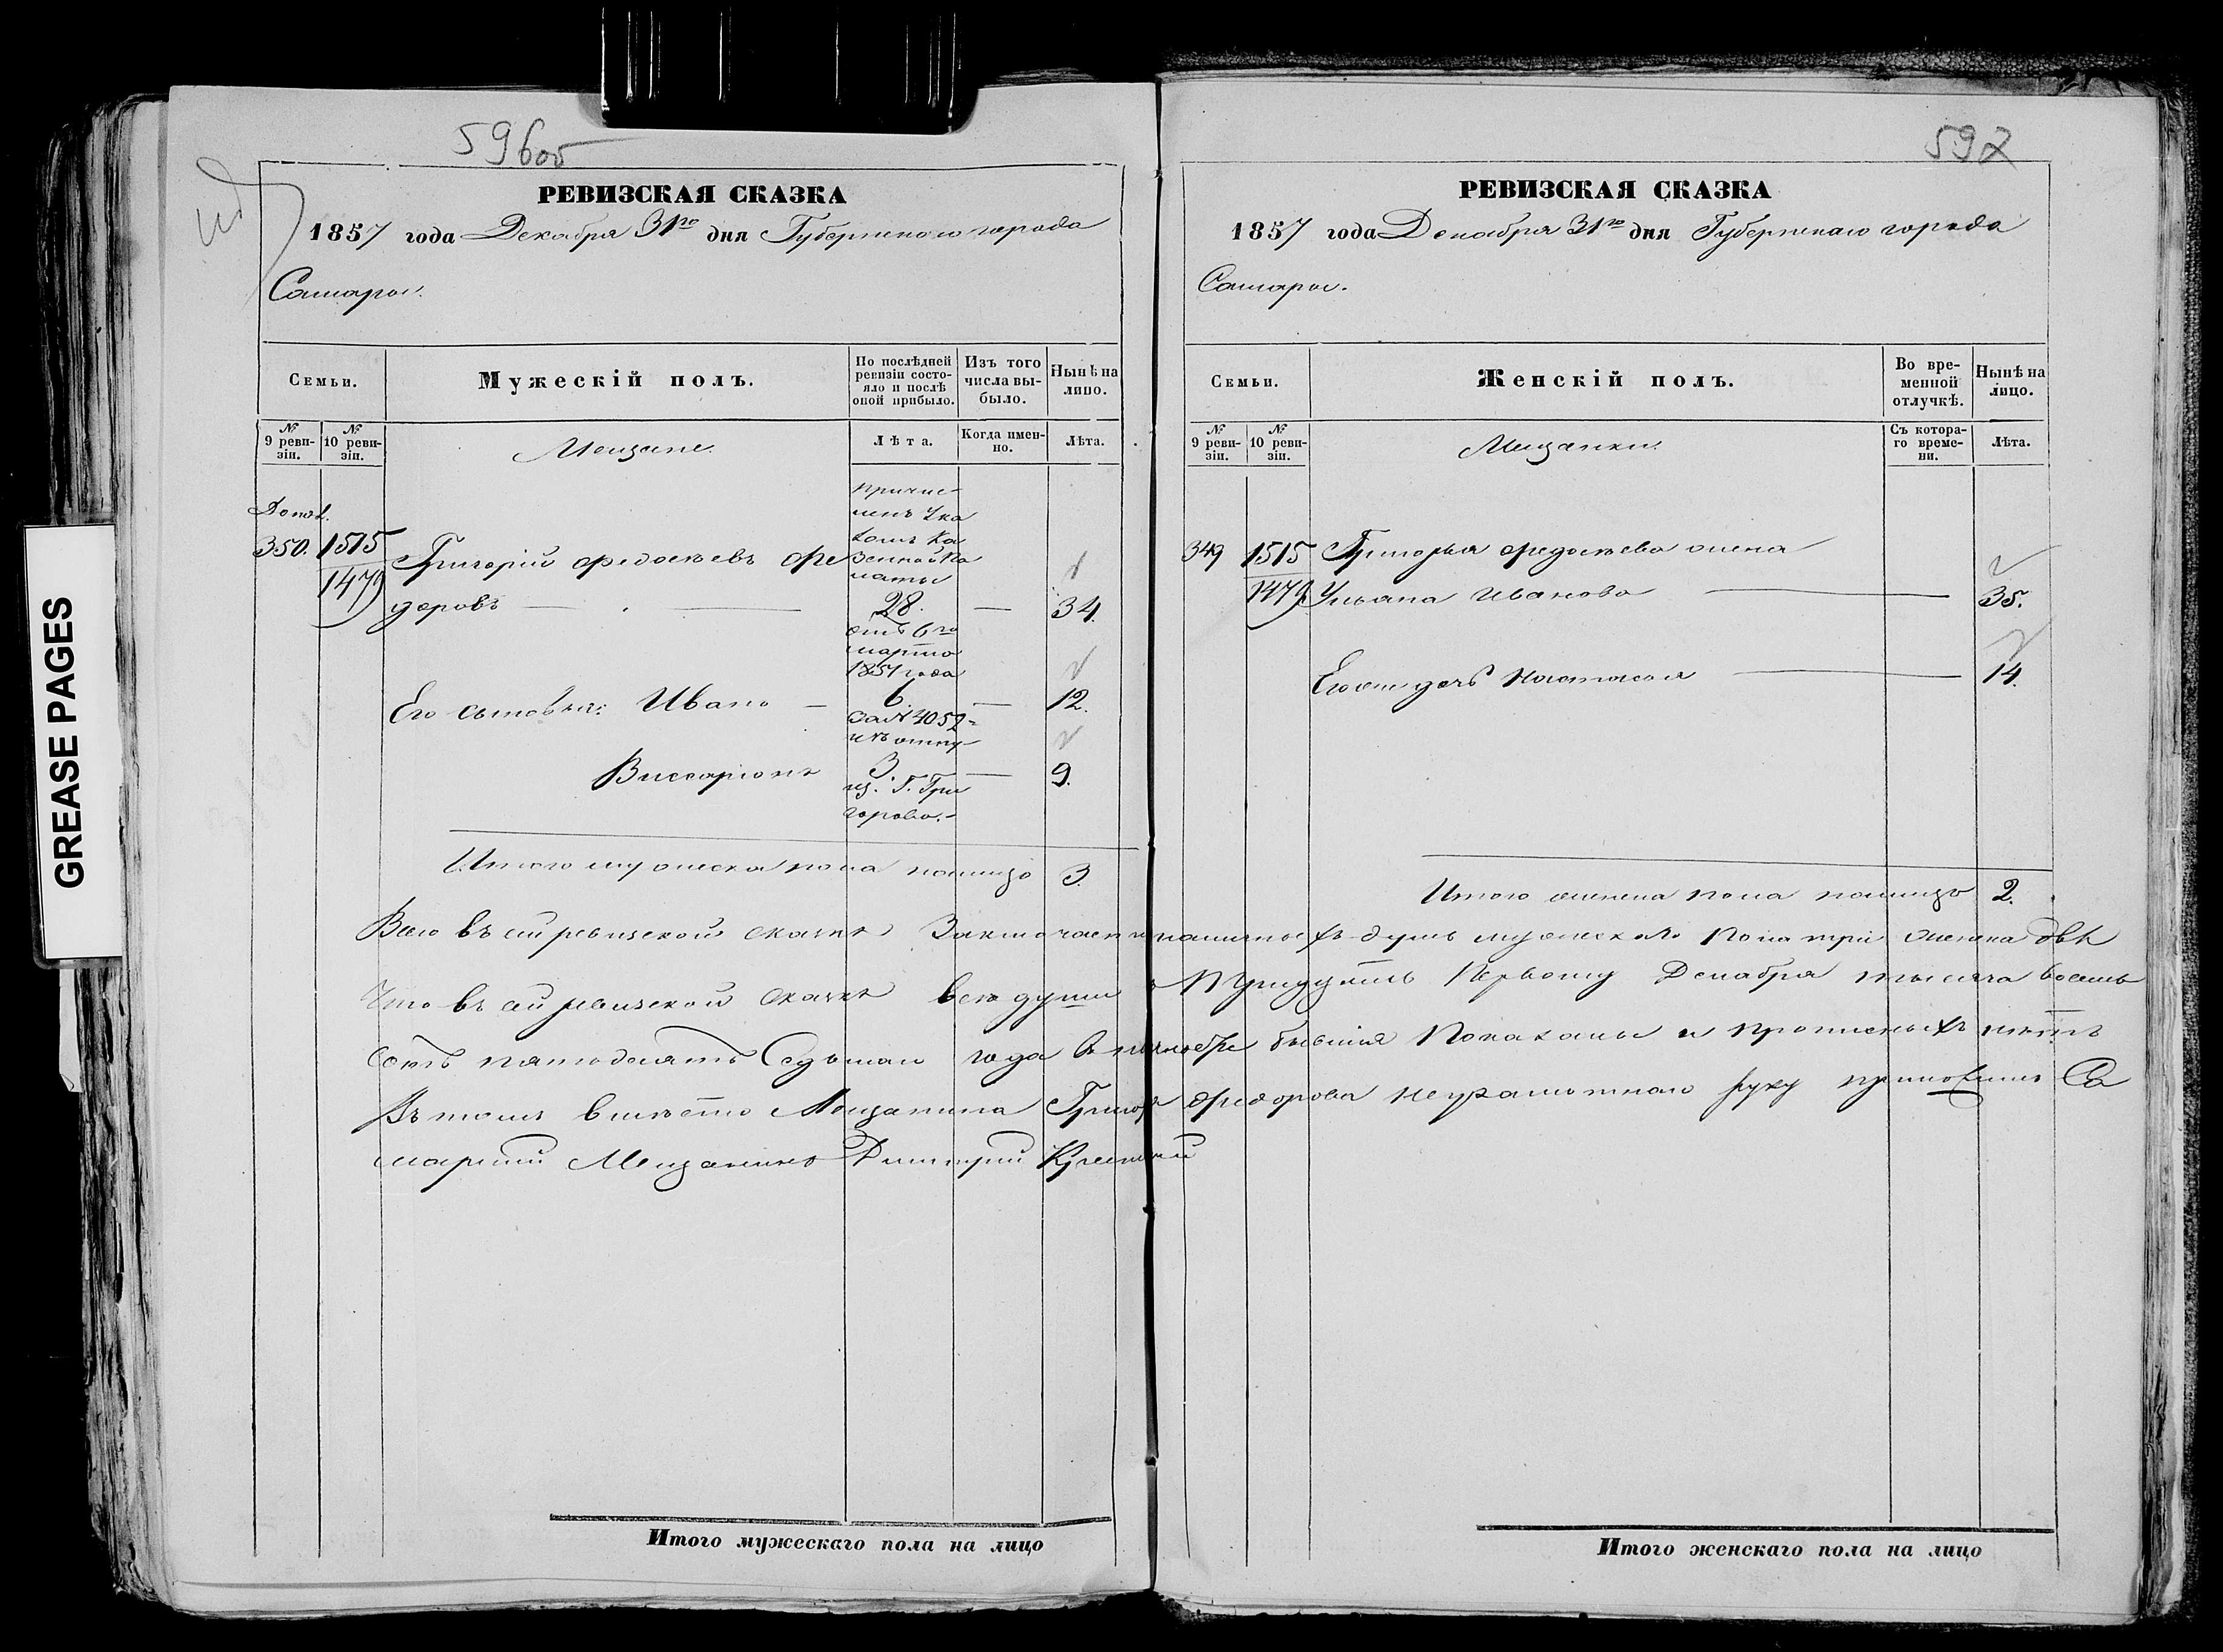 596об
РЕВИЗСКАЯ СКАЗКА
1857 года Декабря 31го дня Губернскаго города
Самары.
Семьи.
Мужескій полъ.
По послѣдней ревизіи состояло и послѣ оной прибыло.
Изъ того числа выбыло.
Нынѣ на лицо.
№ 9 ревизіи.
№ 10 ревизіи.
Мещане.
Лѣта.
Когда именно.
Лѣта.
Допол.
350.
1515
1479
причис-
ленъ Ука
зомъ Ка
зенной Па
латы
Григорій Федосѣевъ Фе
доровъ — 28. — 34.
отъ 6го
марта
1851 года
Его сыновья: Иванъ — 6. — 12.
за № 4052
изъ отпу-
Виссаріонъ 3. — 9.
из. Г. Гри
горова.
Итого мужеска пола налицо 3.
РЕВИЗСКАЯ СКАЗКА
597
1857 года Декабря 31го дня Губернскаго города
Самары.
Семьи.
Женскій полъ.
Во временной отлучкѣ.
Нынѣ на лицо.
№ 9 ревизіи.
№ 10 ревизіи.
Мещанки.
Съ котораго времени.
Лѣта.
349
1515
1479
Григорья Федосѣева жена
Ульяна Иванова — 35.
Его дочь Настасья — 14.
Итого женска пола налицо 2.
Всего въ сей ревизской сказкѣ Заключается наличныхъ душъ мужескаго Пола три женска двѣ
Что въ сей ревизской сказкѣ все души к Тридцать Первому Декабря тысяча восемь
сотъ пятьдесятъ Седьмаго года бывшія Показаны и прописныхъ нѣтъ
Въ томъ вмѣсто Мещанина Григорья Федорова неграмотнаго руку приложилъ Са
марскій Мещанинъ Дмитрий
Итого мужескаго пола на лицо
Итого женскаго пола на лицо
GREASE PAGES